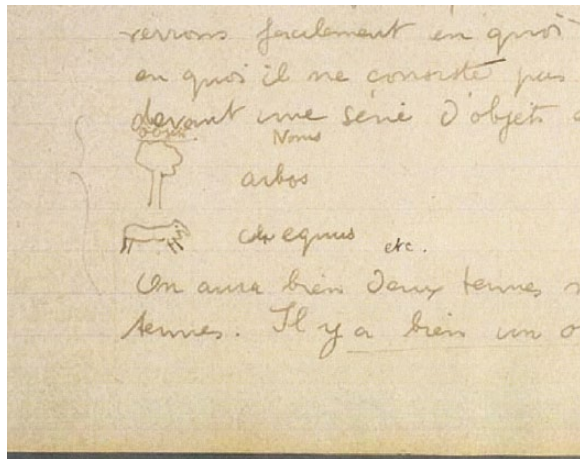 verrons facilement en quoi
en quoi il ne consiste pas
devant une série d'objets
objets Noms
arbos
equus etc.
On aura bien deux termes
termes. Il y a bien un o